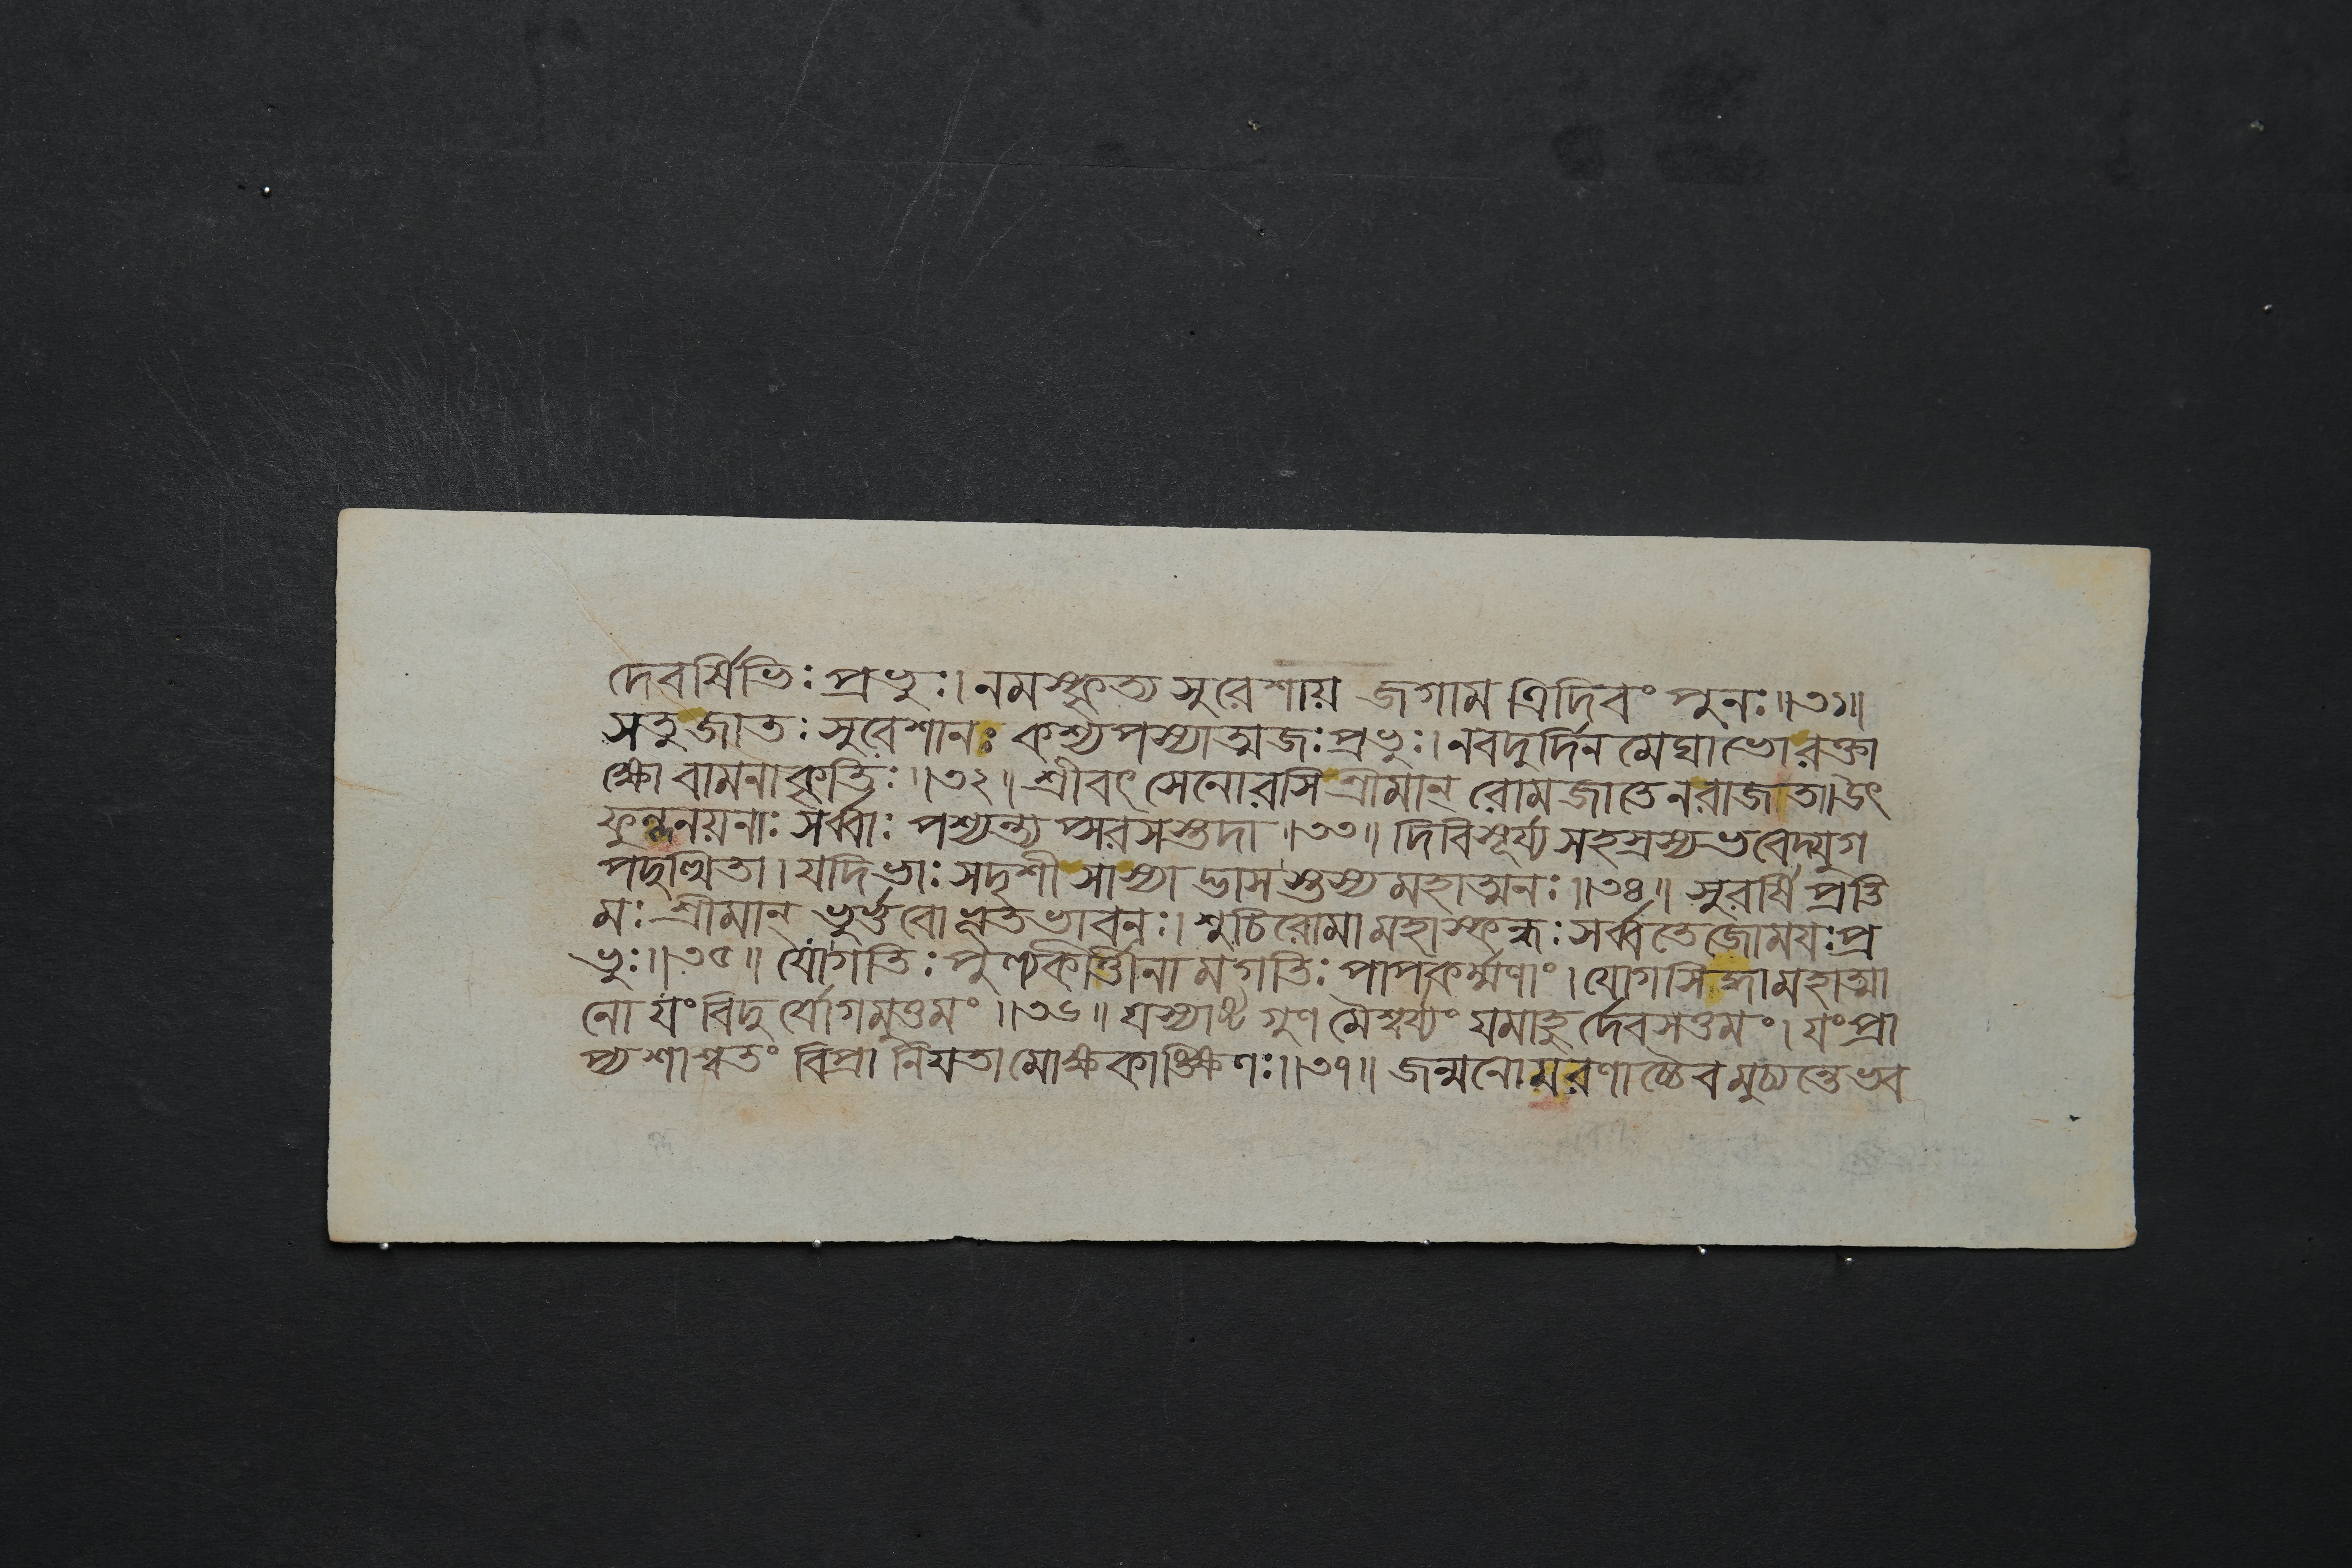 দেবর্ষিভিঃ প্রভুঃ। নমস্কৃত্য সুরেশায় জগাম ত্রিদিবং পুনঃ॥৩১॥
সতু জাতঃ সুরেশানঃ কশ্যপস্যাত্মজঃ প্রভুঃ। নবদুর্দিন মেঘাভো রক্তা
ক্ষো বামনাকৃতিঃ॥৩২॥ শ্রীবৎসেনোরসি শ্রীমান্ রোমজাতেন রাজতা। উৎ
ফুল্লনয়নাঃ সর্ব্বাঃ পশ্যন্ত্যপ্সরসস্তদা॥৩৩॥ দিবি সূর্য্য সহস্রস্য ভবেদ্যুগ
পদুত্থিতা। যদি ভাঃ সদৃশী সাস্যাদ্ভাসস্তস্য মহাত্মনঃ॥৩৪॥ সুরর্ষি প্রতি
মঃ শ্রীমান্ ভূর্ভুবো ভূতভাবনঃ। শুচিরোমা মহাস্কন্ধঃ সর্ব্বতেজোময়ঃ প্র
ভুঃ॥৩৫॥ যো গতিঃ পুণ্যকির্ত্তীনামগতিঃ পাপকর্ম্মণাং। যোগসিদ্ধা মহাত্মা
নো যং বিদুর্যোগমুত্তমং॥৩৬॥ যস্যাষ্ট গুণমৈশ্বর্য্যং যমাহুর্দেবসত্তমং। যং প্রা
প্য শাশ্বতং বিপ্রা নিয়তা মোক্ষকাঙ্ক্ষিণঃ॥৩৭॥ জন্মনো মরণাচ্চৈব মুচ্যন্তে ভব